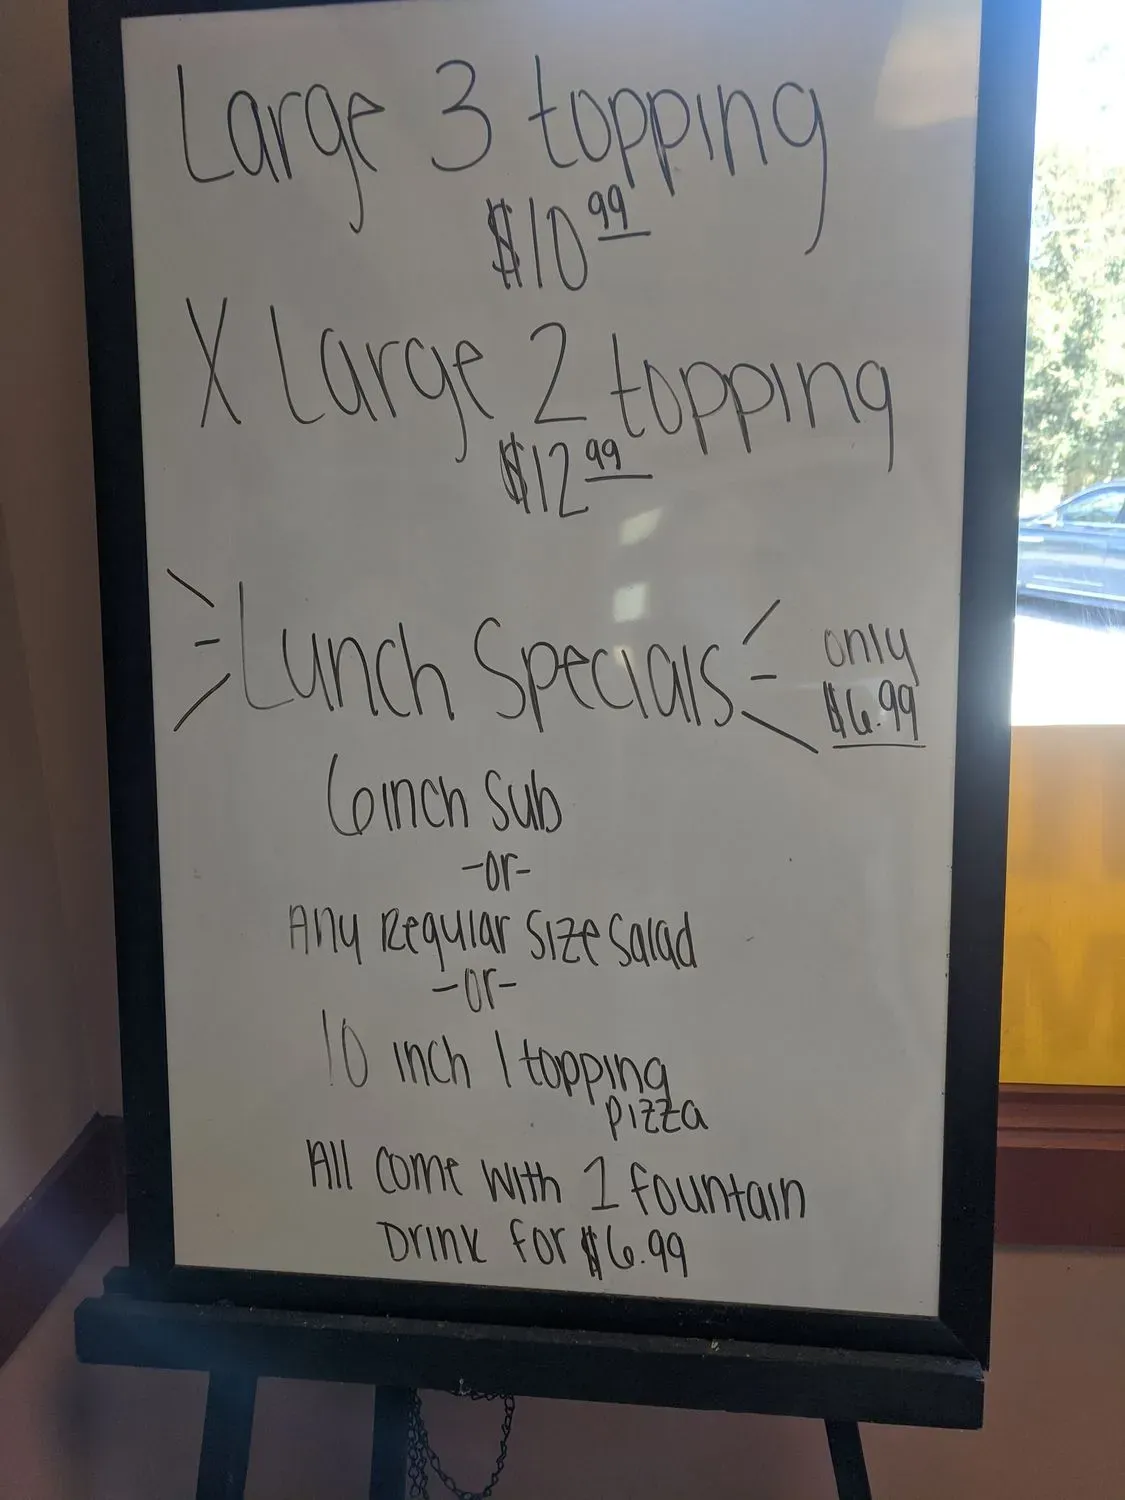 Large 3 topping
$10 99
X Large 2 topping
$12 99
Lunch Specials
only
$6.99
6inch Sub
-or-
Any Regular Size Salad
-or-
10 inch 1 topping
pizza
All come with 1 fountain
Drink for $6.99